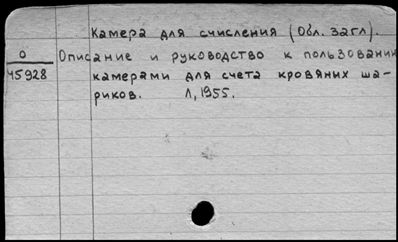 Камера для счисления (Обл. загл).
О Описание и руководство к пользованию
45928 камерами для счета кровяных ша-
риков. Л, 1955.